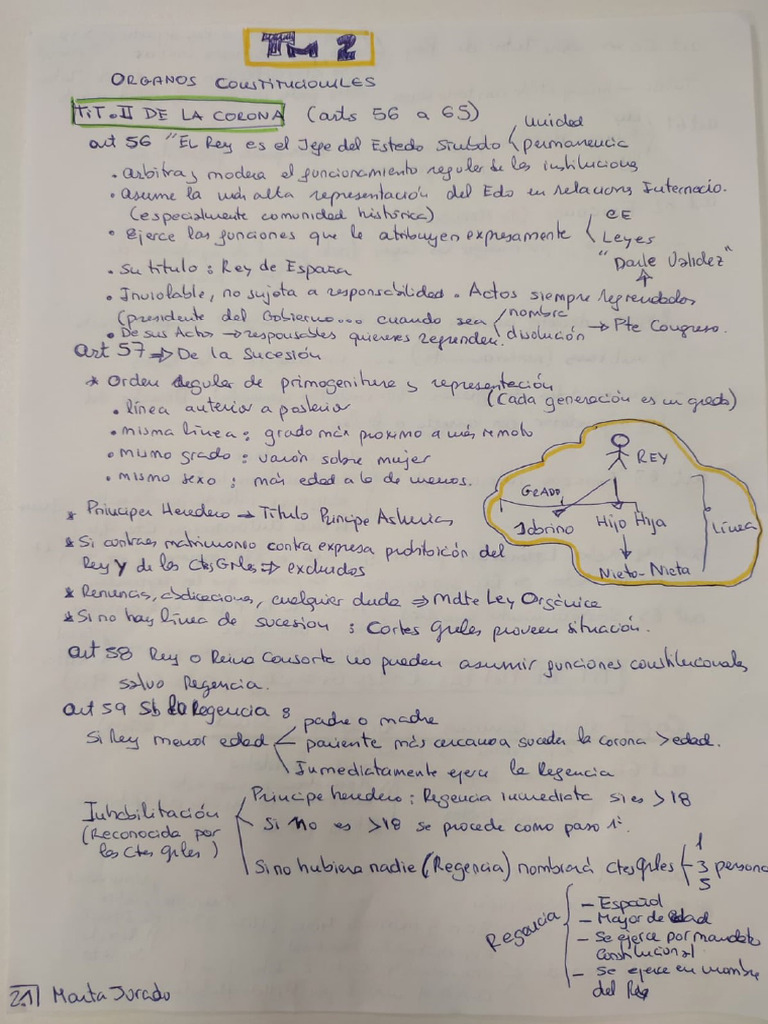 TM 2
ORGANOS CONSTITUCIONALES
TIT. II DE LA CORONA (arts 56 a 65)
art 56 "EL Rey es el Jefe del Estado símbolo < unidad
permanencia
• arbitra y modera el funcionamiento regular de las instituciones
• asume la más alta representación del Edo en relaciones Internacio.
(especialmente comunidad histórica)
• Ejerce las funciones que le atribuyen expresamente < CE
Leyes
• Su título : Rey de España
"Darle Validez"
• Inviolable, no sujeta a responsabilidad. Actos siempre refrendados
(presidente del Gobierno... cuando sea < nombra
disolución → Pte Congreso.
• De sus Actos → responsables quienes refrenden.
art 57 ⇒ De la Sucesión
* Orden regular de primogenitura y representación
(Cada generación es un grado)
• línea anterior a posterior
• misma línea : grado más proximo a más remoto
• mismo grado : varón sobre mujer
• mismo sexo : más edad a lo de menos.
REY
GRADO
Sobrino Hijo Hija
Línea
Nieto-Nieta
* Principe Heredero → Título Príncipe Asturias
* Si contraes matrimonio contra expresa prohibición del
Rey y de las CtesGrles ⇒ excluidos
* Renuncias, abdicaciones, cualquier duda ⇒ Mdte Ley Orgánica
* Si no hay línea de sucesion : Cortes Grles proveen situación.
art 58 Rey o Reina Consorte no pueden asumir funciones constitucionales
salvo Regencia.
art 59 Sb la Regencia :
Si Rey menor edad < padre o madre
pariente más cercano a suceder la corona > edad.
Inmediatamente ejerce la Regencia
Inhabilitación
(Reconocida por
las Ctes Grles)
Principe heredero : Regencia inmediata si es > 18
Si no es > 18 se procede como paso 1º.
Si no hubiera nadie (Regencia) nombrará Ctes Grles { 1
3 persona
5
Regencia { – Español
– Mayor de edad
– Se ejerce por mandato
Constitucional
– Se ejerce en nombre
del Rey
2.1 Marta Jurado